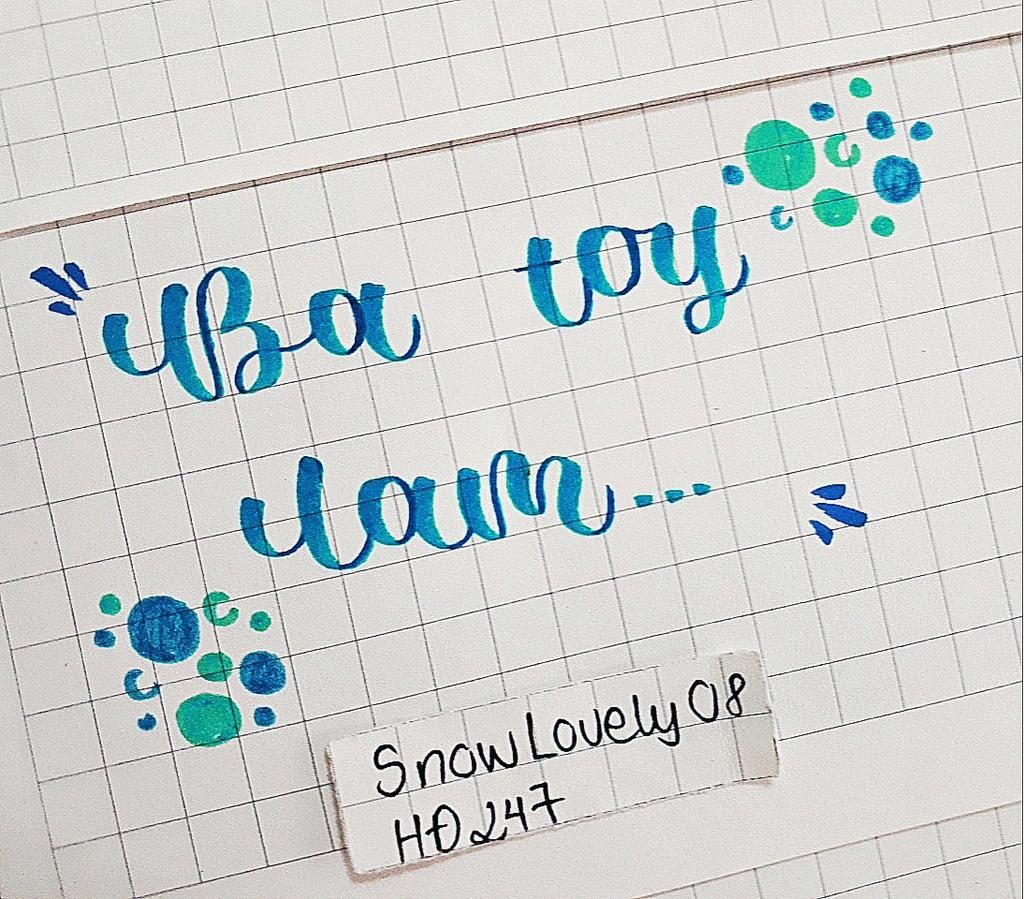 Ba toy
Lam...
SnowLovely08
HĐ247